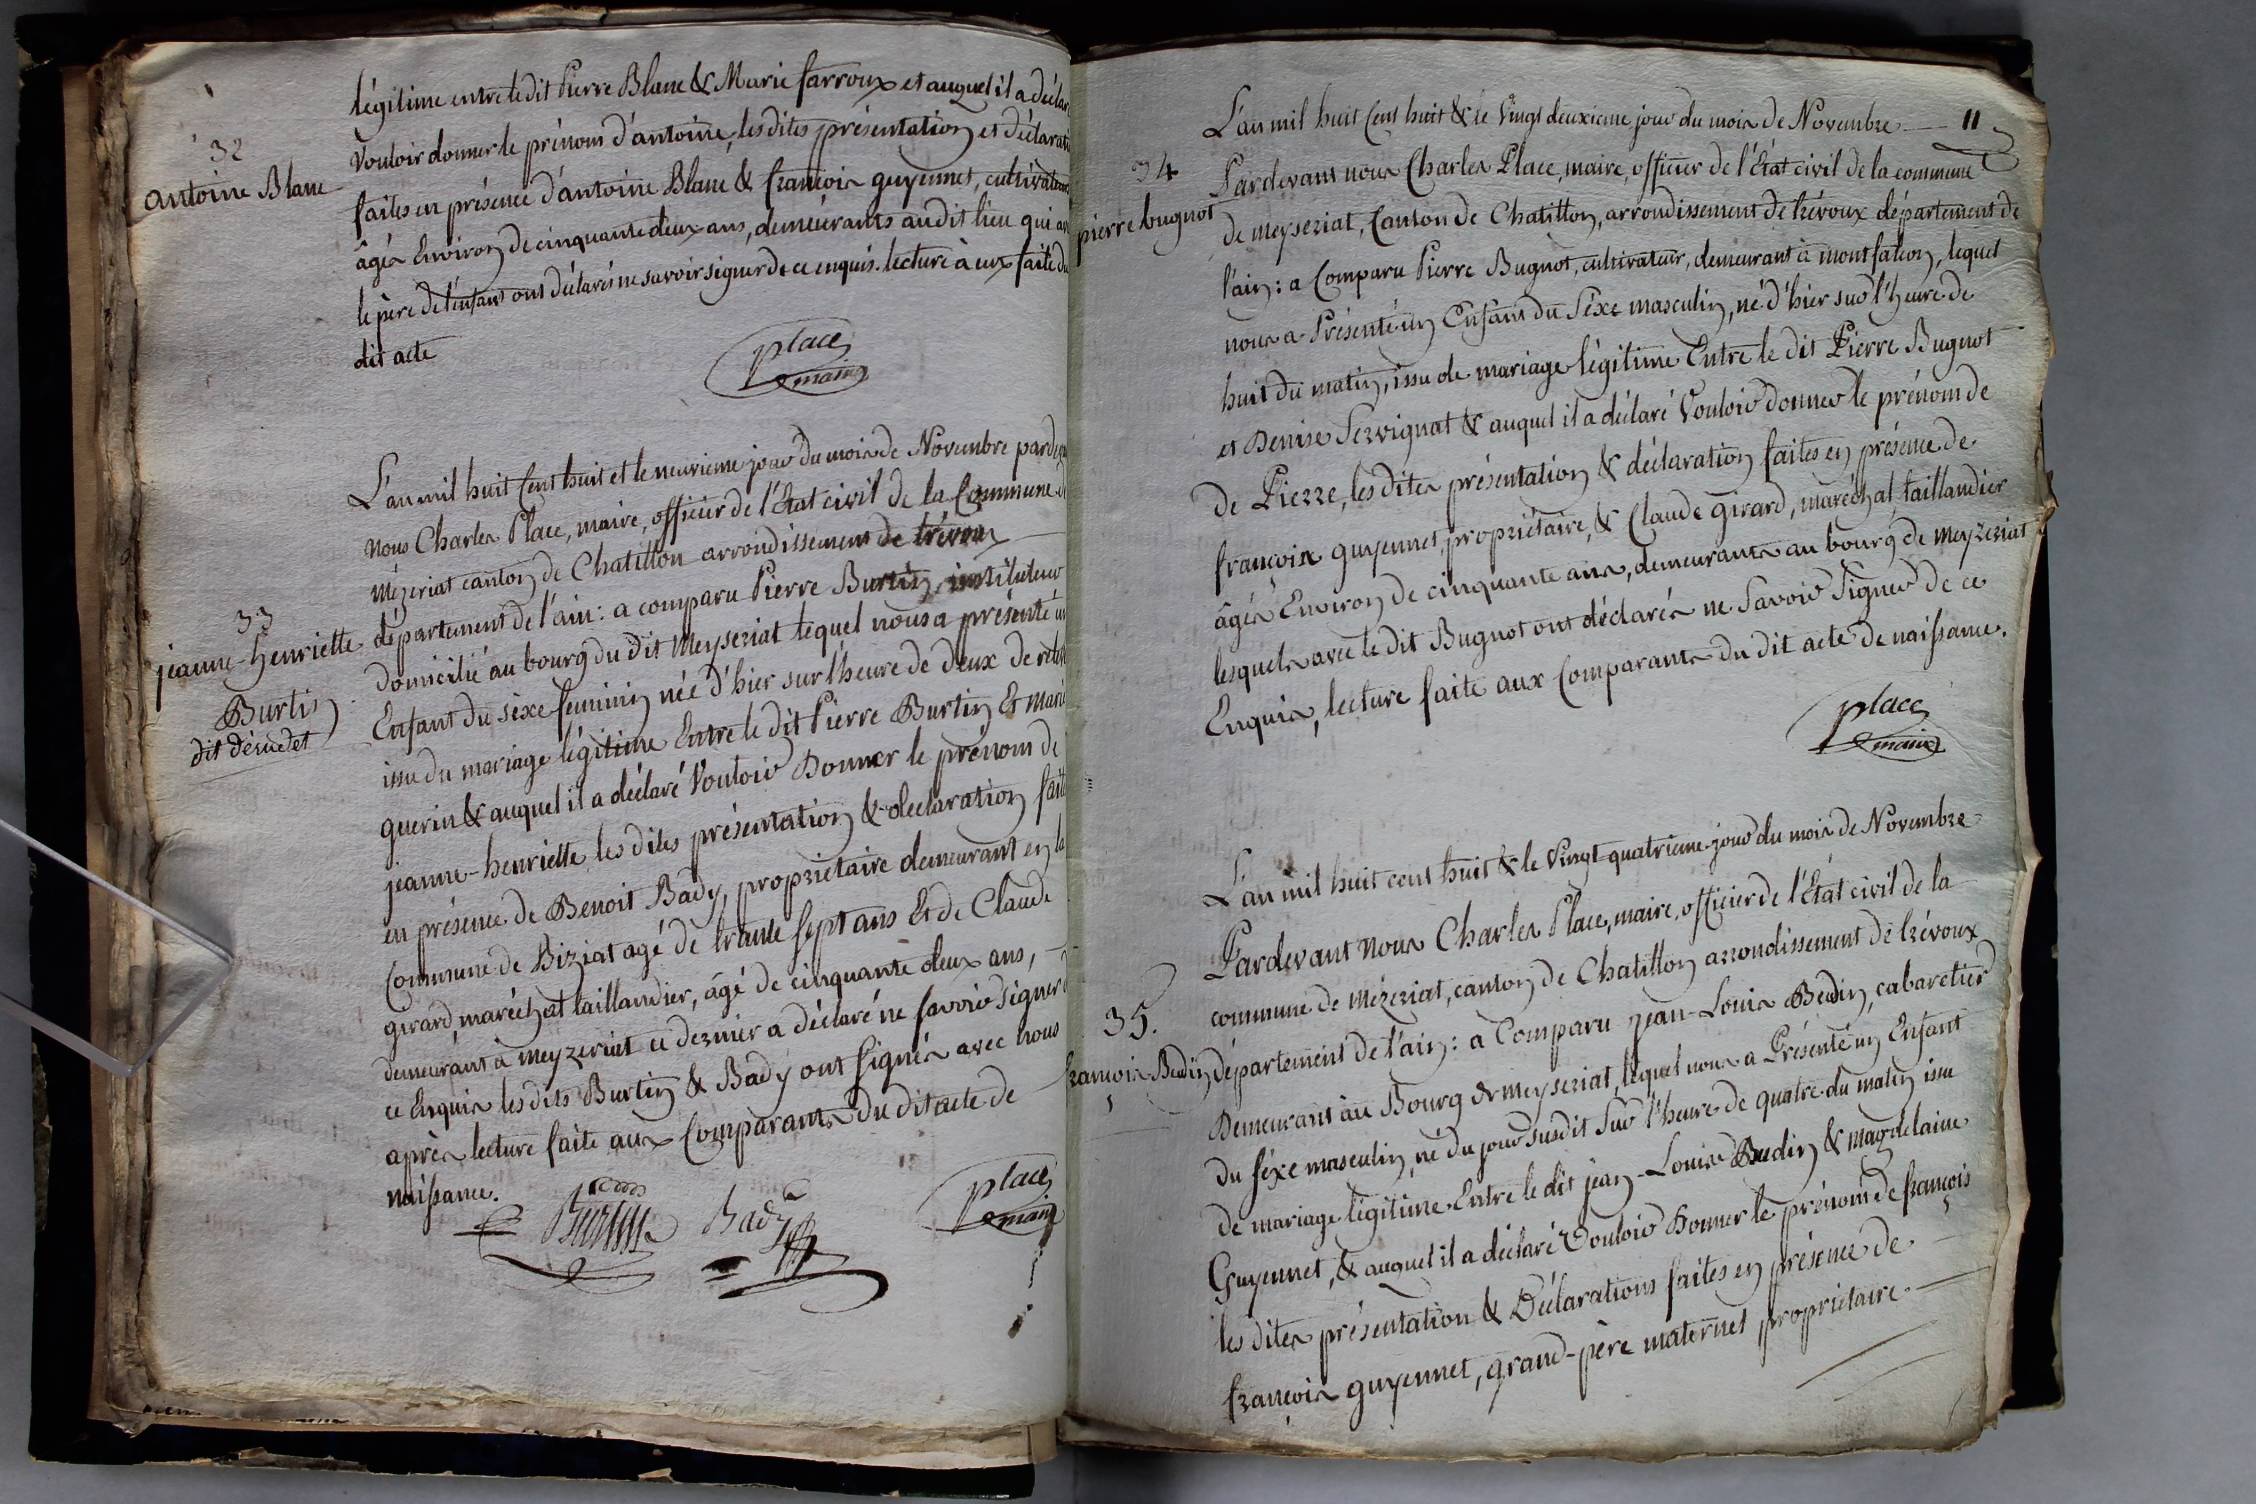 légitime entre le dit Pierre Blanc & Marie farroux et auquel il a déclar
32
vouloir donner le prénom d'antoine, les dites présentation et déclarati
antoine Blanc
faites en présence d'antoine Blanc & françois guyennet, cultivateurs
âgés Environ de cinquante deux ans, demeurants au dit lieu qui a
le père de l'enfant ont déclarés ne savoir signer de ce enquis. lecture à eux faite du
dit acte
place
maire
L'an mil huit Cent huit et le neuvieme jour du mois de Novembre parde
nous Charles Place, maire, officier de l'Etat civil de la Commune de
Mézeriat canton de Chatillon arrondissement de trévoux
département de l'ain : a comparu Pierre Burtin, instituteur
33
jeanne-henriette
Burtin
dit
domicilié au bourg du dit Meyseriat lequel nous a présenté un
Enfant du sèxe feminin née d'hier sur l'heure de deux de
issu du mariage légitime Entre le dit Pierre Burtin Et Marie
guerin & auquel il a déclaré Vouloir Donner le prénom de
jeanne-henriette les dites présentation & declaration faite
en présence de Benoit Bady, propriétaire demeurant en la
Commune de Biziat agé de trante sept ans Et de Claude
girard, maréchal taillandier, âgé de cinquante deux ans,
demeurant à Meyzeriat ce dernier a déclaré ne savoir signer d
ce Enquis les dits Burtin & Bady ont signés avec nous
après lecture faite aux Comparants du dit acte de
naissance.
Burtin
Bady
place
maire
L'an mil huit Cent huit & le Vingt deuxieme jour du mois de Novembre
11
34
pierre bugnot
Pardevant nous Charles Place, maire, officier de l'Etat civil de la commune
de meyseriat, Canton de Chatillon, arrondissement de trévoux département de
l'ain : a Comparu Pierre Bugnot, cultivateur, demeurant à montfalcon, lequel
nous a Présenté un Enfant du Séxe masculin, né d'hier sur l'heure de
huit du matin, issu de mariage légitime Entre le dit Pierre Bugnot
et Denise Servignat & auquel il a déclaré Vouloir donner le prénom de
de Pierre, les dites présentation & déclaration faites en présence de
françois guyennet, propriétaire, & Claude girard, maréchal, taillandier
âgés Environ de cinquante ans, demeurants au bourg de meyzeriat
lesquels avec le dit Bugnot ont déclarés ne Savoir Signer de ce
Enquis, lecture faite aux Comparants du dit acte de naissance.
place
maire
L'an mil huit cent huit & le Vingt quatrieme jour du mois de Novembre
Pardevant nous Charles Place, maire, officier de l'Etat civil de la
commune de Mézeriat, canton de Chatillon arrondissement de trévoux
35.
françois Bedin
département de l'ain : a Comparu jean-Louis Bedin, cabaretier
Demeurant au Bourg de meyseriat, lequel nous a Présenté un Enfant
du séxe masculin, né du jour susdit Sur l'heure de quatre du matin issu
de mariage légitime Entre le dit jean-Louis Bedin & magdelaine
Guyennet, & auquel il a déclaré Vouloir Donner le prénom de françois
les dites présentation & Déclarations faites en présence de
françois guyennet, grand-père maternel propriétaire.